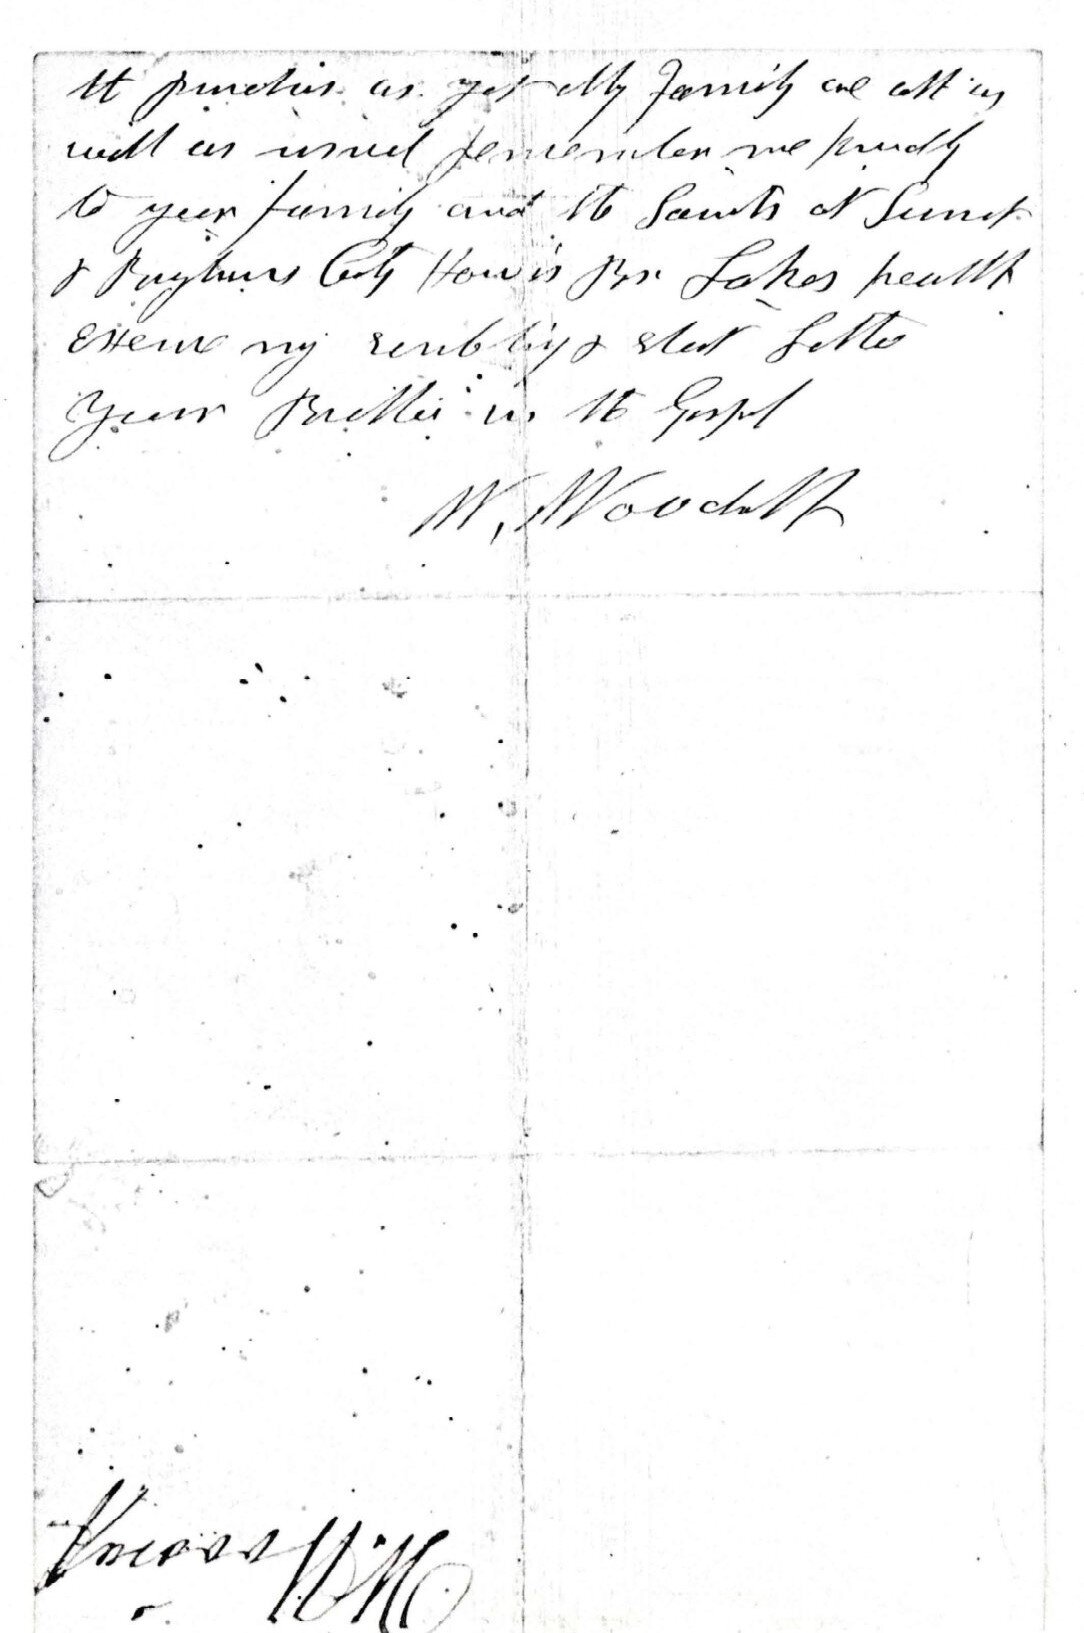 as yet My Family are all as
well as usual remember me kindly
to your family and the Saints at Sunset
& Brighams City How is Br Lakes health
Excuse my & Letter
Your Brother in the Gospel
W. Woodruff